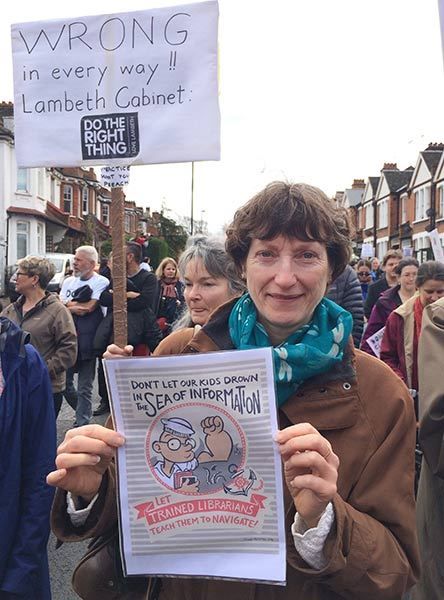 WRONG
in every way !!
Lambeth Cabinet:
DO THE
RIGHT
THING
LOVE LAMBETH
PRACTICE
WHAT YOU
PREACH
DON'T LET OUR KIDS DROWN
IN THE SEA OF INFORMATION
LET
TRAINED LIBRARIANS
TEACH THEM TO NAVIGATE!